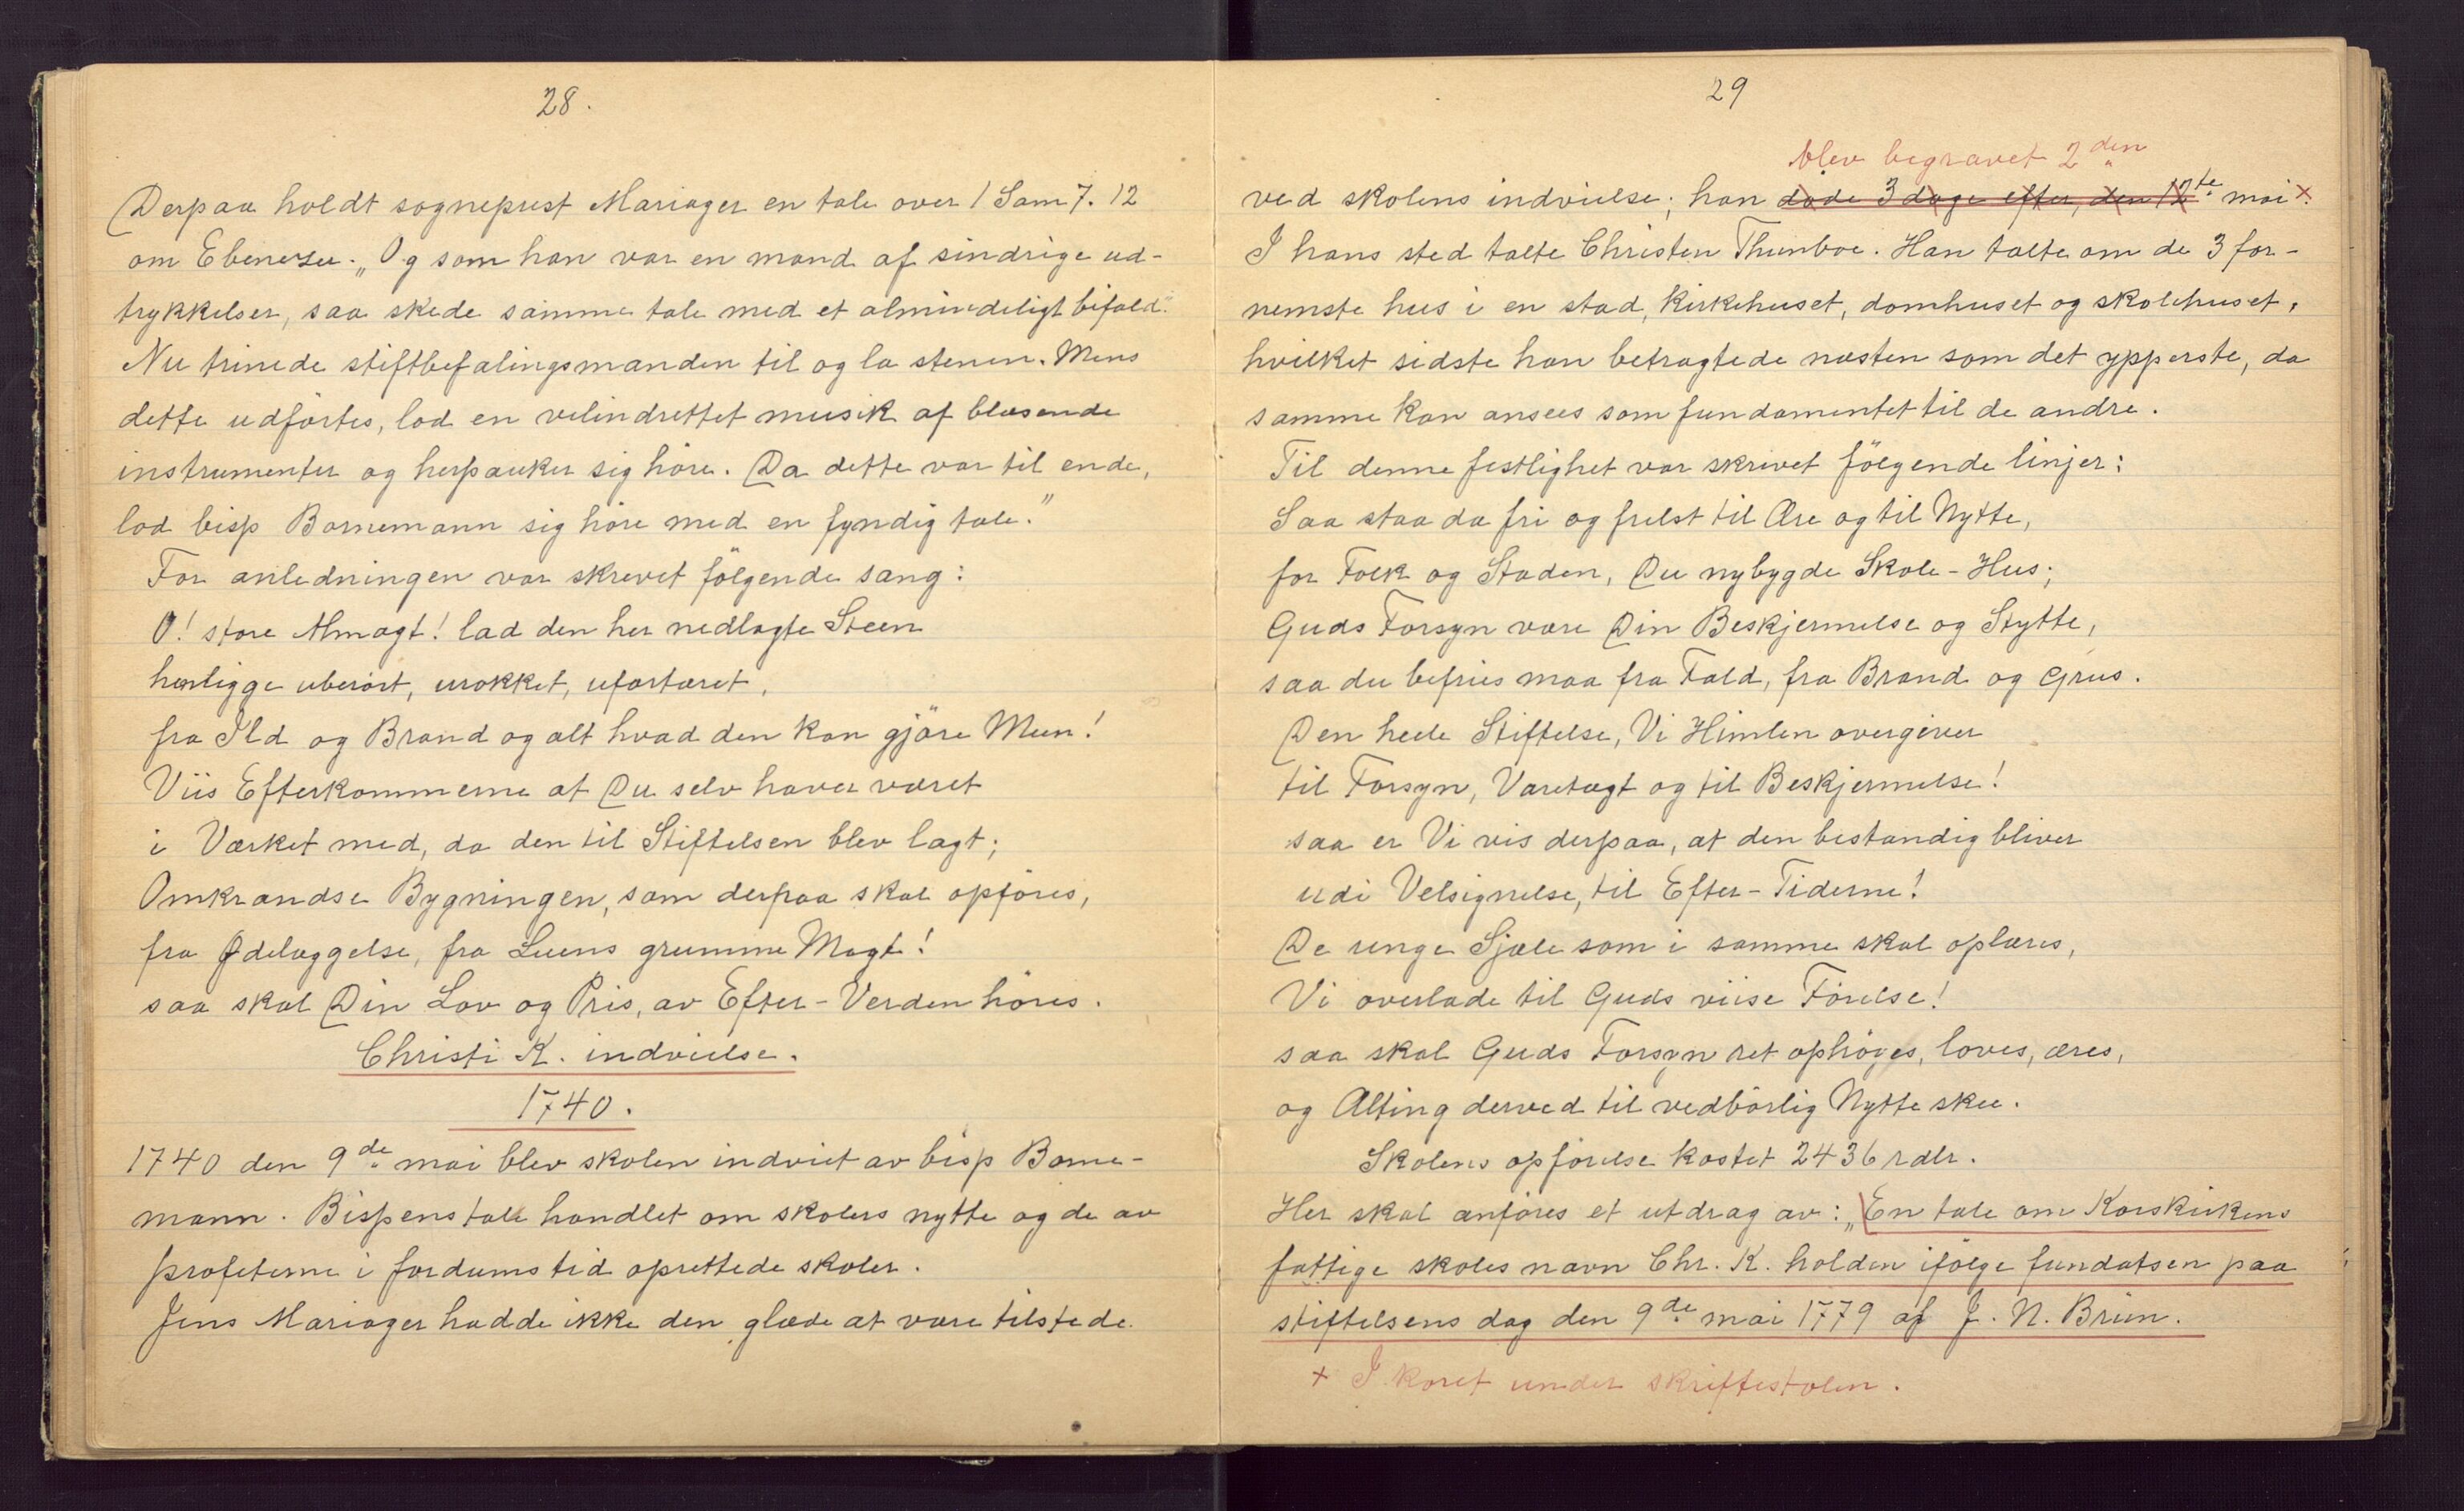 28.
Derpaa holdt sogneprest Mariager en tale over 1 Sam 7. 12
om Ebeneser. „Og som han var en mand af sindrige ud-
trykkelser, saa skede samme tale med et almindeligt bifald."
Nu trinede stiftbefalingsmanden til og la stenen. Mens
dette udførtes, lod en velindrettet musik af blæsende
instrumenter og herpauker sig høre. Da dette var til ende,
lod bisp Bornemann sig høre med en fyndig tale."
For anledningen var skrevet følgende sang:
O! store Almagt! lad den her nedlagte Steen
henligge uberørt, urokket, ufortæret,
fra Ild og Brand og alt hvad den kan gjøre Meen!
Viis Efterkommerne at Du selv haver været
i Værket med, da den til Stiftelsen blev lagt;
Omkrandse Bygningen, som derpaa skal opføres,
fra Ødelæggelse, fra Luens grumme Magt!
saa skal Din Lov og Pris, av Efter-Verden høres.
Christi K. indvielse.
1740.
1740 den 9de mai blev skolen indviet av bisp Borne-
mann. Bispens tale handlet om skolers nytte og de av
profeterne i fordums tid oprettede skoler.
Jens Mariager hadde ikke den glæde at være tilstede
29
blev begravet 2den
ved skolens indvielse; han døde 3 dage efter, den 12te mai ×.
I hans sted talte Christen Thunboe. Han talte om de 3 for-
nemste hus i en stad, kirkehuset, domhuset og skolehuset,
hvilket sidste han betragtede næsten som det ypperste, da
samme kan ansees som fundamentet til de andre.
Til denne festlighet var skrivet følgende linjer:
Saa staa da fri og frelst til Ære og til Nytte,
for Folk og Staden, Du nybygde Skole-Hus;
Guds Forsyn være Din Beskjermelse og Stytte,
saa du befries maa fra Fald, fra Brand og Grus.
Den heele Stiftelse, Vi Himlen overgiver
til Forsyn, Varetægt og til Beskjermelse!
saa er Vi vis derpaa, at den bestandig bliver
udi Velsignelse, til Efter-Tiderne!
De unge Sjæle som i samme skal oplæres,
Vi overlade til Guds viise Førelse!
saa skal Guds Forsyn ret ophøyes, loves, æres,
og Alting derved til vedbørlig Nytte skee.
Skolens opførelse kostet 2436 rdlr.
Her skal anføres et utdrag av: „En tale om Korskirkens
fattige skoles navn Chr. K. holden ifølge fundatsen paa
stiftelsens dag den 9de mai 1779 af J. N. Brun.
× I koret under skriftestolen.